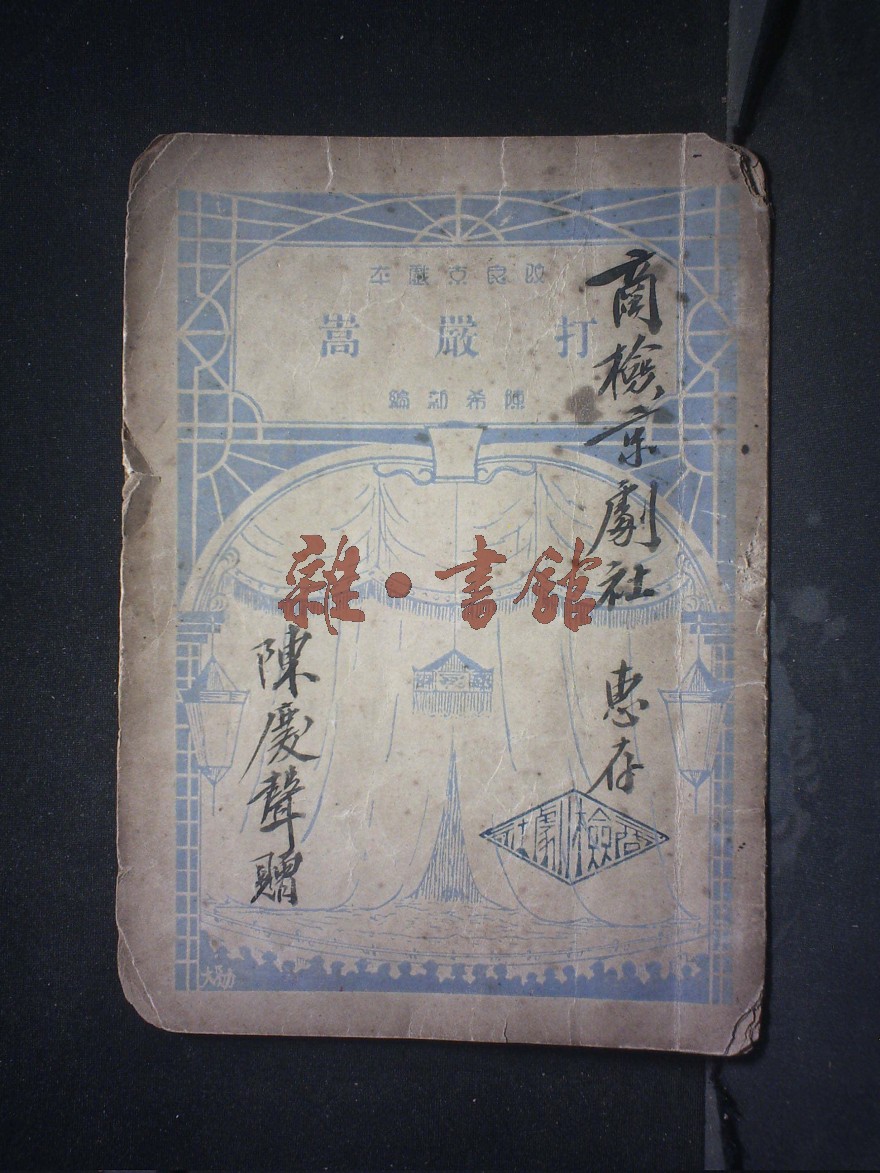 改良京戲本
打嚴嵩
陳希新編
商檢京劇社 惠存
陳慶聲贈
商檢劇社
雜·書館